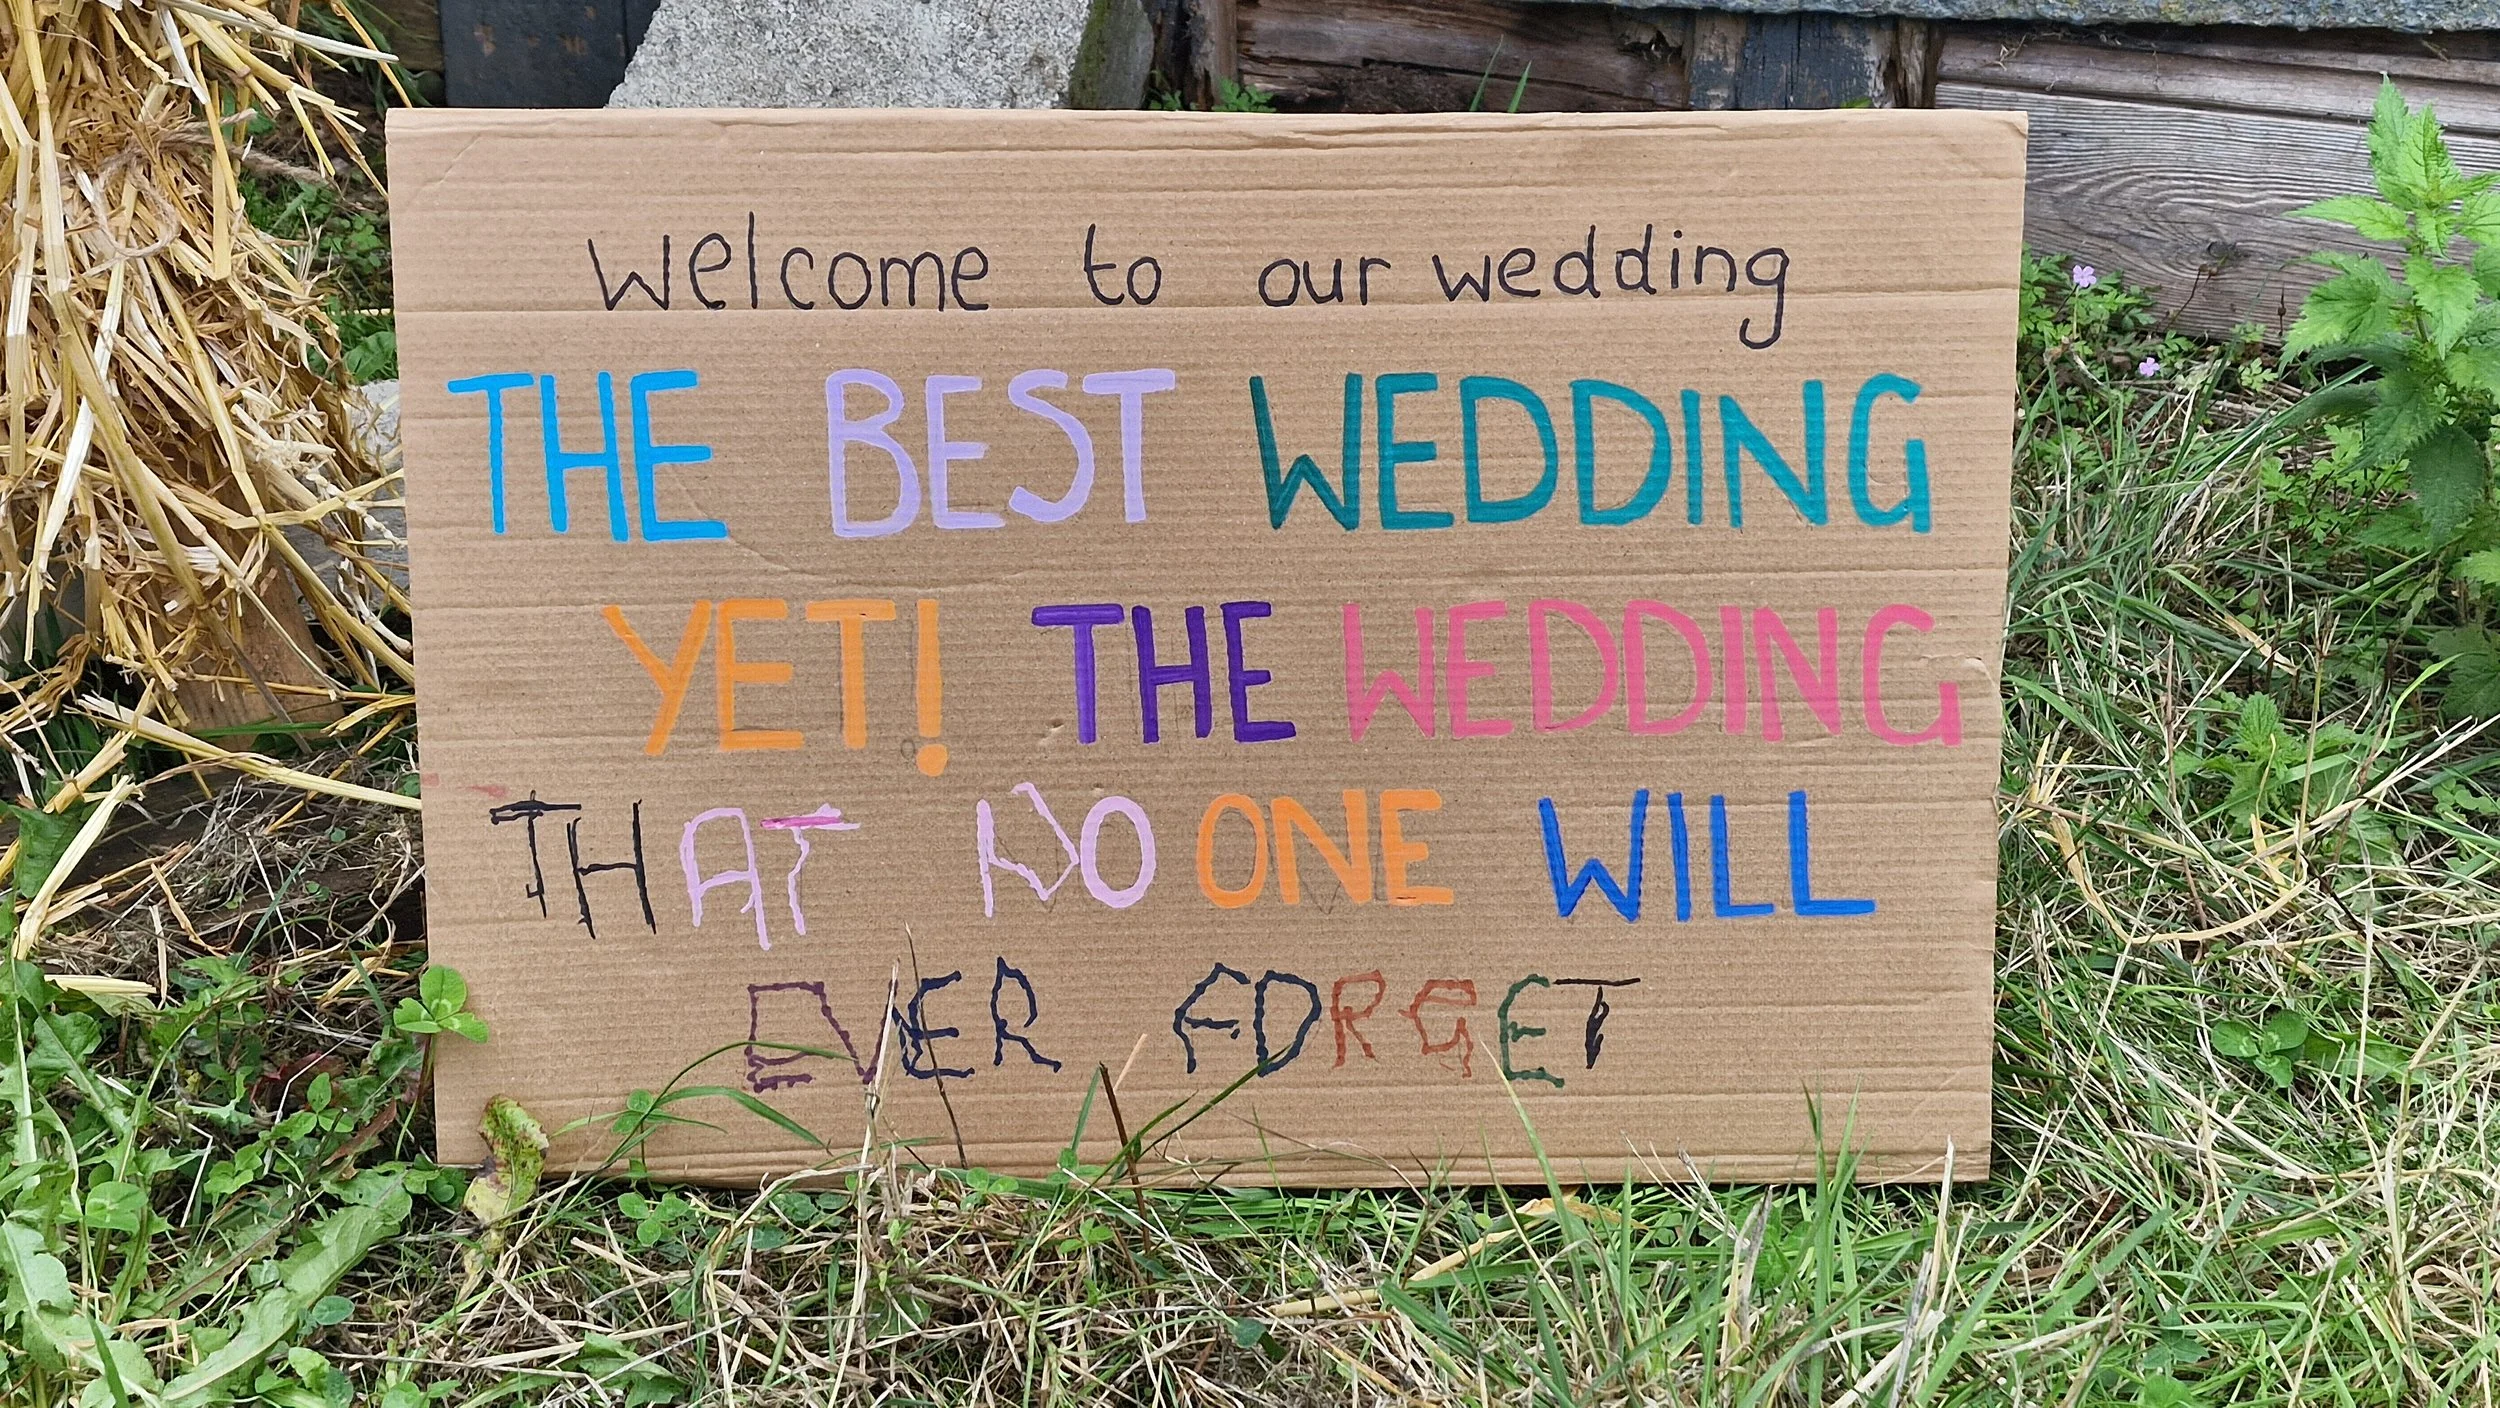 welcome to our wedding
THE BEST WEDDING
YET! THE WEDDING
THAT NO ONE WILL
EVER FORGET